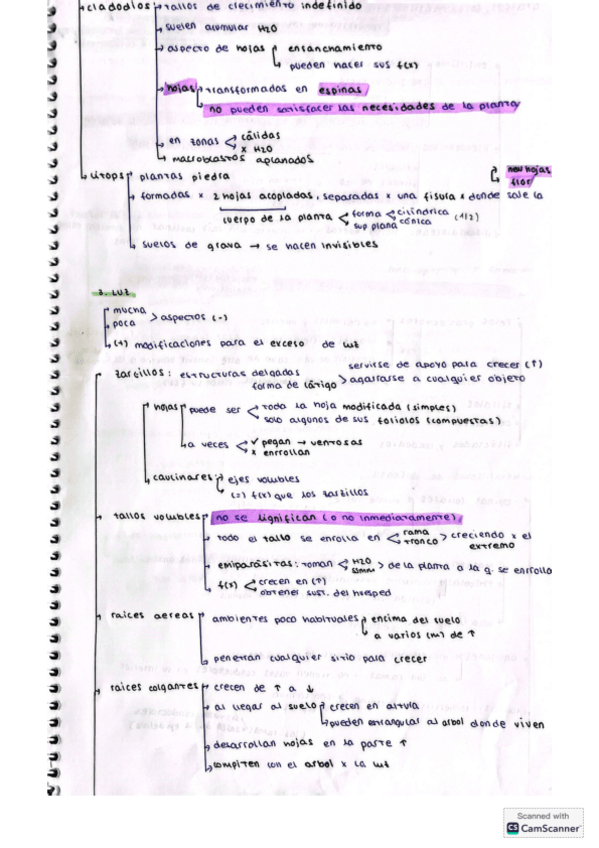 cladodios → tallos de crecimiento indefinido
→ suelen acumular H2O
→ aspecto de hojas ensanchamiento
pueden hacer sus f(x)
→ hojas → transformadas en espinas
no pueden satisfacer las necesidades de la planta
→ en zonas < cálidas
x H2O
→ macroblastos aplanados
litops → plantas piedra
new hojas
flor
→ formadas x 2 hojas acopladas, separadas x una fisura x donde sale la
cuerpo de la planta < forma < cilíndrica
cónica (1/2)
sup plana
→ suelos de grava → se hacen invisibles
3. LUZ
mucha
poca > aspectos (-)
(+) modificaciones para el exceso de luz
zarcillos: estructuras delgadas
forma de látigo > servirse de apoyo para crecer (↑)
agarrarse a cualquier objeto
hojas → puede ser < toda la hoja modificada (simples)
solo algunos de sus foliolos (compuestas)
→ a veces < ✓ pegan → ventosas
x enrrollan
→ caulinares: ejes volubles
(=) f(x) que los zarzillos
→ tallos volubles → no se lignifican (o no inmediatamente)
→ todo el tallo se enrolla en < rama
tronco > creciendo x el
extremo
→ emiparásitas: toman < H2O
> de la planta a la q. se enrolla
→ f(x) < crecen en (↑)
obtener sust. del huesped
→ raices aereas → ambientes poco habituales encima del suelo
a varios (m) de ↑
→ penetran cualquier sitio para crecer
→ raices colgantes → crecen de ↑ a ↓
→ al llegar al suelo crecen en altura
→ pueden estrangular al arbol donde viven
→ desarrollan hojas en la parte ↑
→ compiten con el arbol x la luz
Scanned with
CS CamScanner